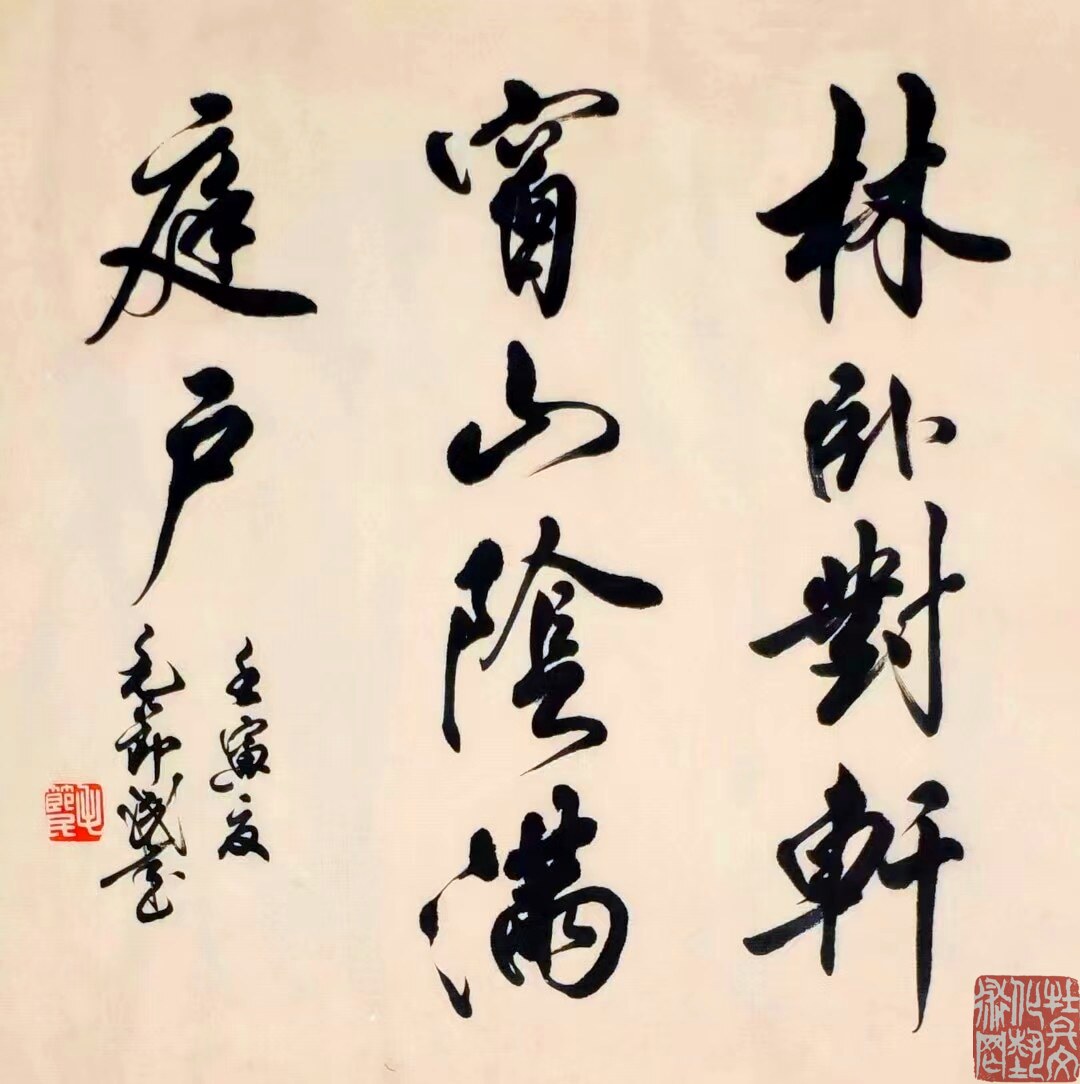 林卧對軒
窗山陰滿
庭户
壬寅夏